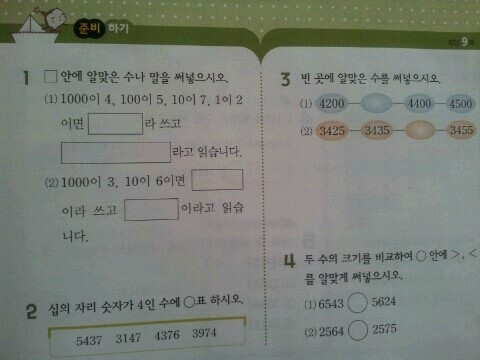 준비 하기
1 □ 안에 알맞은 수나 말을 써넣으시오.
(1) 1000이 4, 100이 5, 10이 7, 1이 2
이면 라 쓰고
라고 읽습니다.
(2) 1000이 3, 10이 6이면
이라 쓰고 이라고 읽습
니다.
2 십의 자리 숫자가 4인 수에 ○표 하시오.
5437 3147 4376 3974
3 빈 곳에 알맞은 수를 써넣으시오.
(1) 4200 4400 4500
(2) 3425 3435 3455
4 두 수의 크기를 비교하여 ○ 안에 >, <
를 알맞게 써넣으시오.
(1) 6543 ○ 5624
(2) 2564 ○ 2575